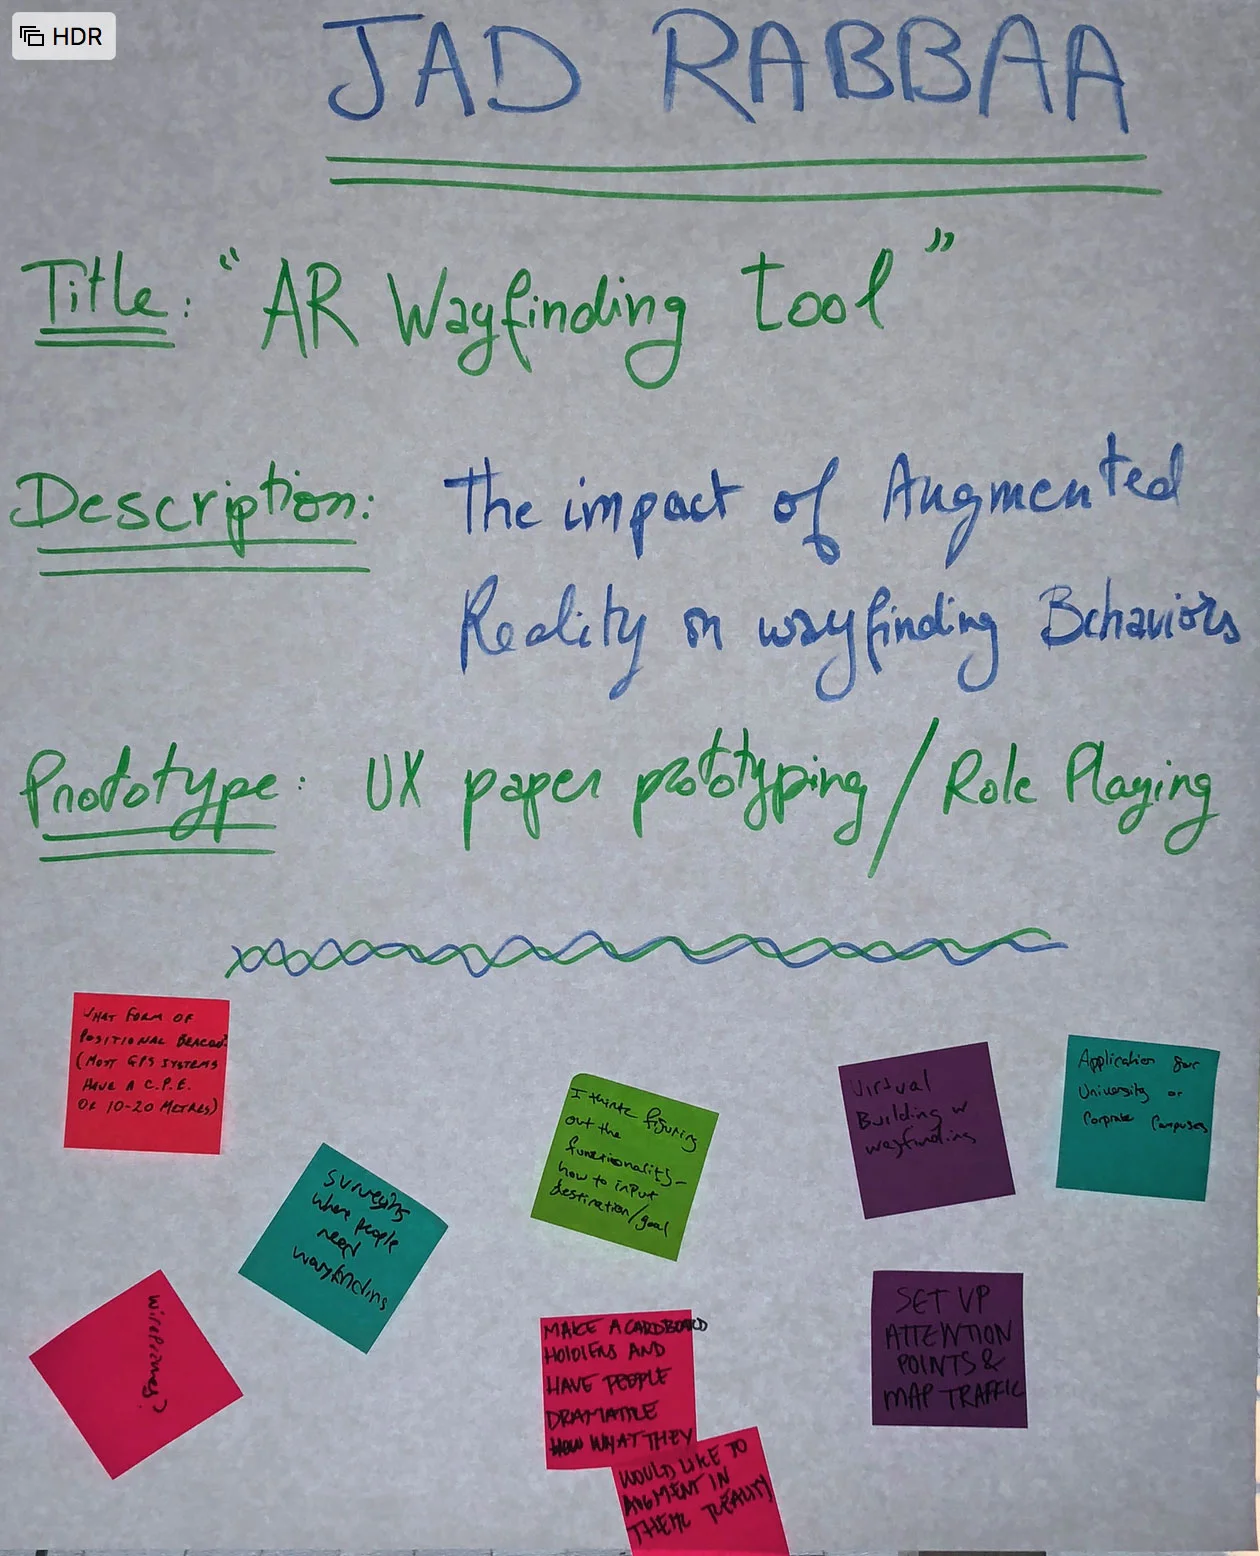 HDR
JAD RABBAA
Title: "AR Wayfinding tool"
Description: The impact of Augmented
Reality on wayfinding Behaviors
Prototype: UX paper prototyping / Role Playing
WHAT FORM OF
POSITIONAL BEACON?
(MOST GPS SYSTEMS
HAVE A C.P.E.
OF 10-20 METRES)
Surveying
where people
need
wayfinding
wireframes?
I think figuring
out the
functionality-
how to input
destination/goal
MAKE A CARDBOARD
HOLDERS AND
HAVE PEOPLE
HOW WHAT THEY
WOULD LIKE TO
AUGMENT IN
THEIR REALITY
Virtual
Building w
wayfinding
SET UP
ATTENTION
POINTS &
MAP TRAFFIC
Application for
University or
Corporate Campuses